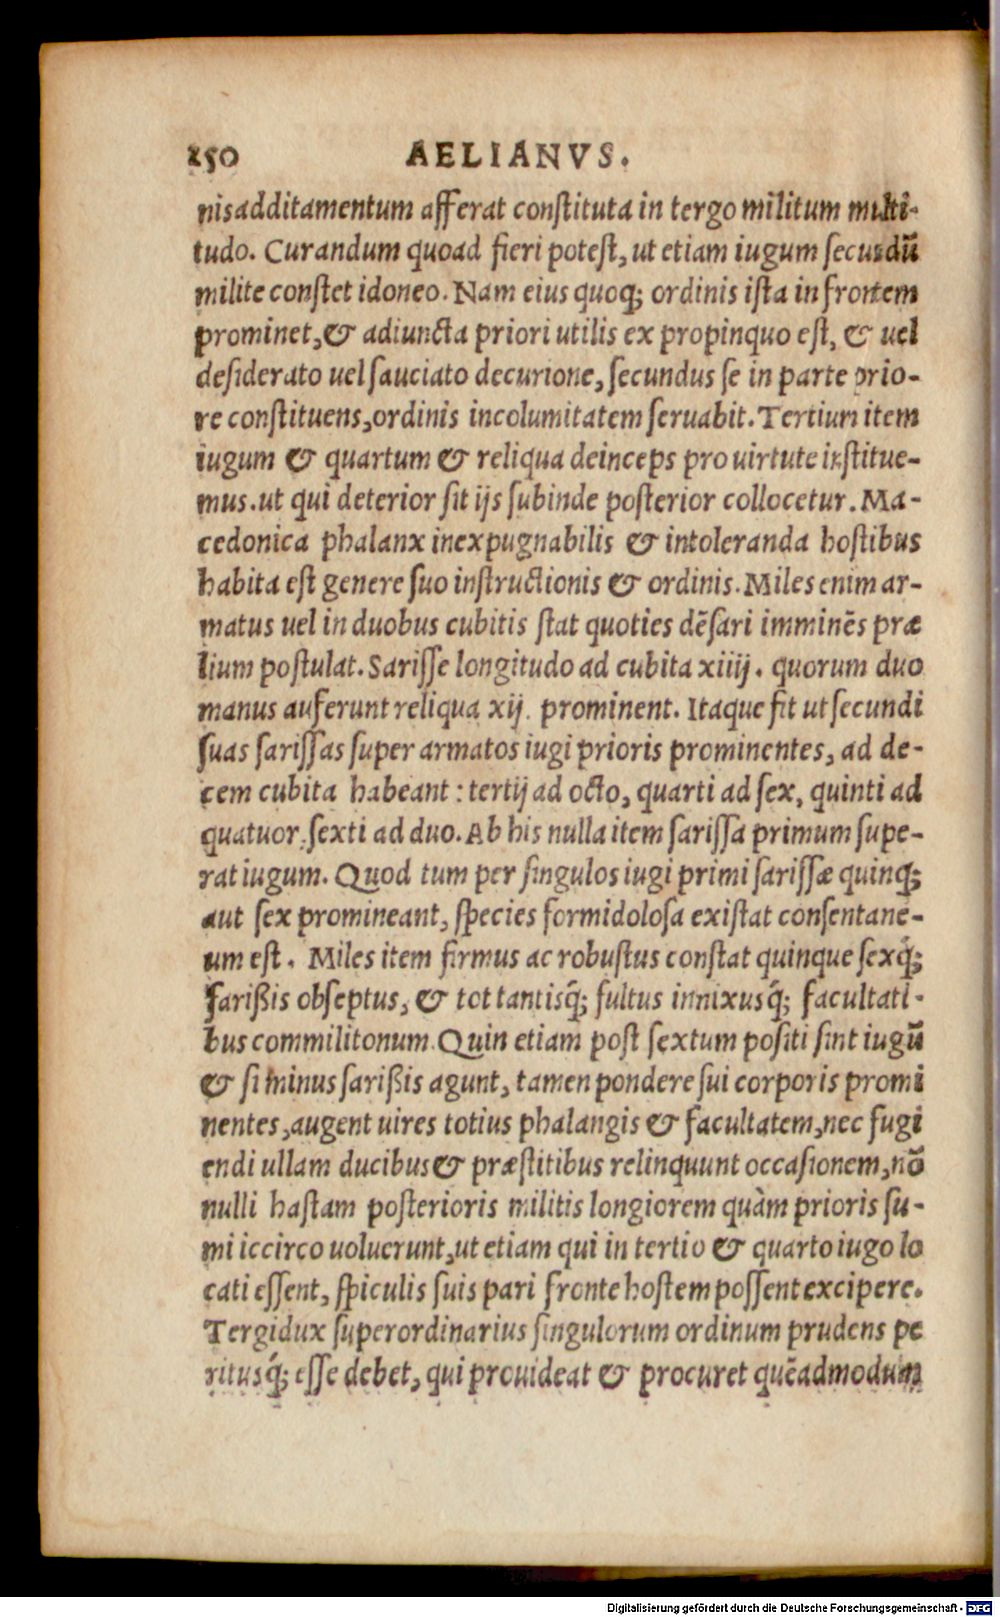 250 AELIANVS.
nis additamentum afferat conſtituta in tergo militum multi-
tudo. Curandum quoad fieri poteſt, ut etiam iugum ſecundū
milite conſtet idoneo. Nam eius quoq; ordinis iſta in frontem
prominet, & adiuncta priori utilis ex propinquo eſt, & uel
deſiderato uel ſauciato decurione, ſecundus ſe in parte prio-
re conſtituens, ordinis incolumitatem ſeruabit. Tertium item
iugum & quartum & reliqua deinceps pro uirtute inſtitue-
mus. ut qui deterior ſit ijs ſubinde poſterior collocetur. Ma-
cedonica phalanx inexpugnabilis & intoleranda hoſtibus
habita eſt genere ſuo inſtructionis & ordinis. Miles enim ar-
matus uel in duobus cubitis ſtat quoties dēſari imminēs præ
lium poſtulat. Sariſſe longitudo ad cubita xiiij. quorum duo
manus auferunt reliqua xij. prominent. Itaque fit ut ſecundi
ſuas ſariſſas ſuper armatos iugi prioris prominentes, ad de-
cem cubita habeant : tertij ad octo, quarti ad ſex, quinti ad
quatuor, ſexti ad duo. Ab his nulla item ſariſſa primum ſupe-
rat iugum. Quod tum per ſingulos iugi primi ſariſſæ quinq;
aut ſex promineant, ſpecies formidoloſa exiſtat conſentane-
um eſt. Miles item firmus ac robuſtus conſtat quinque ſexq́;
ſarißis obſeptus, & tot tantisq́; fultus innixusq́; facultati-
bus commilitonum. Quin etiam poſt ſextum poſiti ſint iugū
& ſi minus ſarißis agunt, tamen pondere ſui corporis promi
nentes, augent uires totius phalangis & facultatem, nec fugi
endi ullam ducibus & præſtitibus relinquunt occaſionem, nō
nulli haſtam poſterioris militis longiorem quàm prioris ſu-
mi iccirco uoluerunt, ut etiam qui in tertio & quarto iugo lo
cati eſſent, ſpiculis ſuis pari fronte hoſtem poſſent excipere.
Tergidux ſuperordinarius ſingulorum ordinum prudens pe
ritusq́; eſſe debet, qui prouideat & procuret quēadmodum
Digitalisierung gefördert durch die Deutsche Forschungsgemeinschaft - DFG